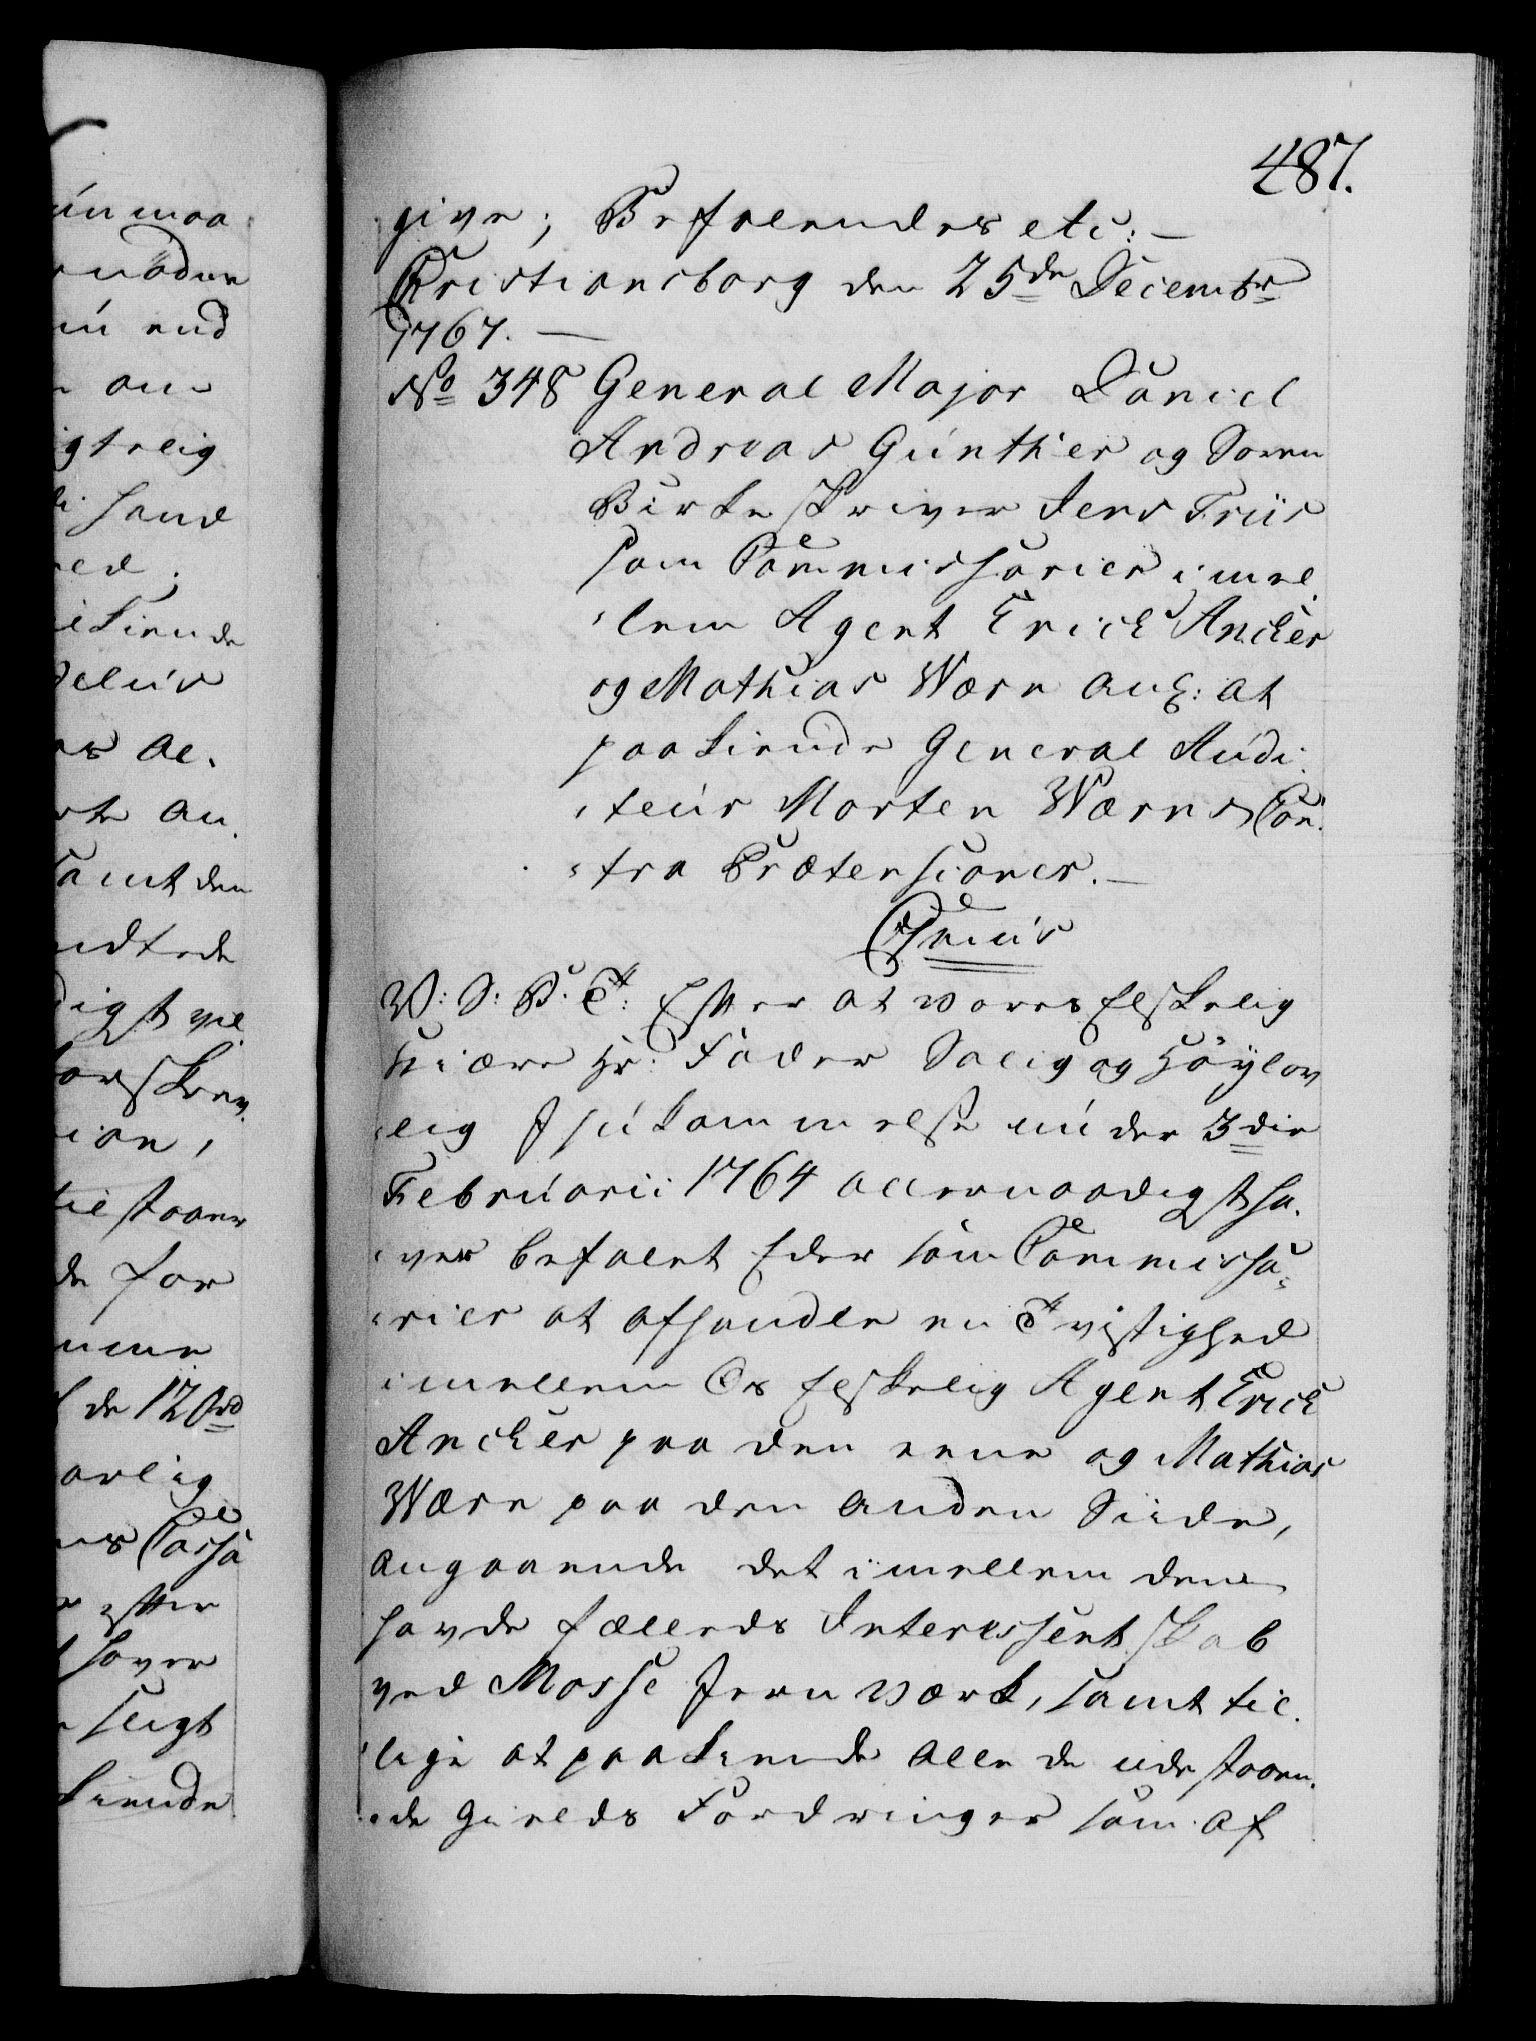 487.
give; Befalendes etc: —
Christiansborg den 25de Decembr
1767. —
No 348 General Major Daniel
Andreas Günthier og Soren
Birkeskriver Jens Friis
som Commissarier imel
lem Agent Erick Ancher
og Mathias Wærn ang: at
paakiende General Audi
teur Morten Wærns Con
tra Prætensioner. —
Genius
W: S: B: T: Efter at vores Elskelig
kiære Hr: Fader Salig og Höylov
lig Ihukommelse under 3die
Februarii 1764 allernaadigst ha
ver befalet Eder som Commissa
rier at afhandle en Tvistighed
imellem Os Elskelig Agent Erick
Ancher paa den eene og Mathias
Wærn paa den anden Siide,
angaaende det imellem dem
havde fælleds Interessentskab
ved Mosse Jernværk, samt til
lige at paakiende alle de udestaaen
de Gields Fordringer som af
ün maa
ün end
om
hand
de for
de 120rd
efter
haver
kiende